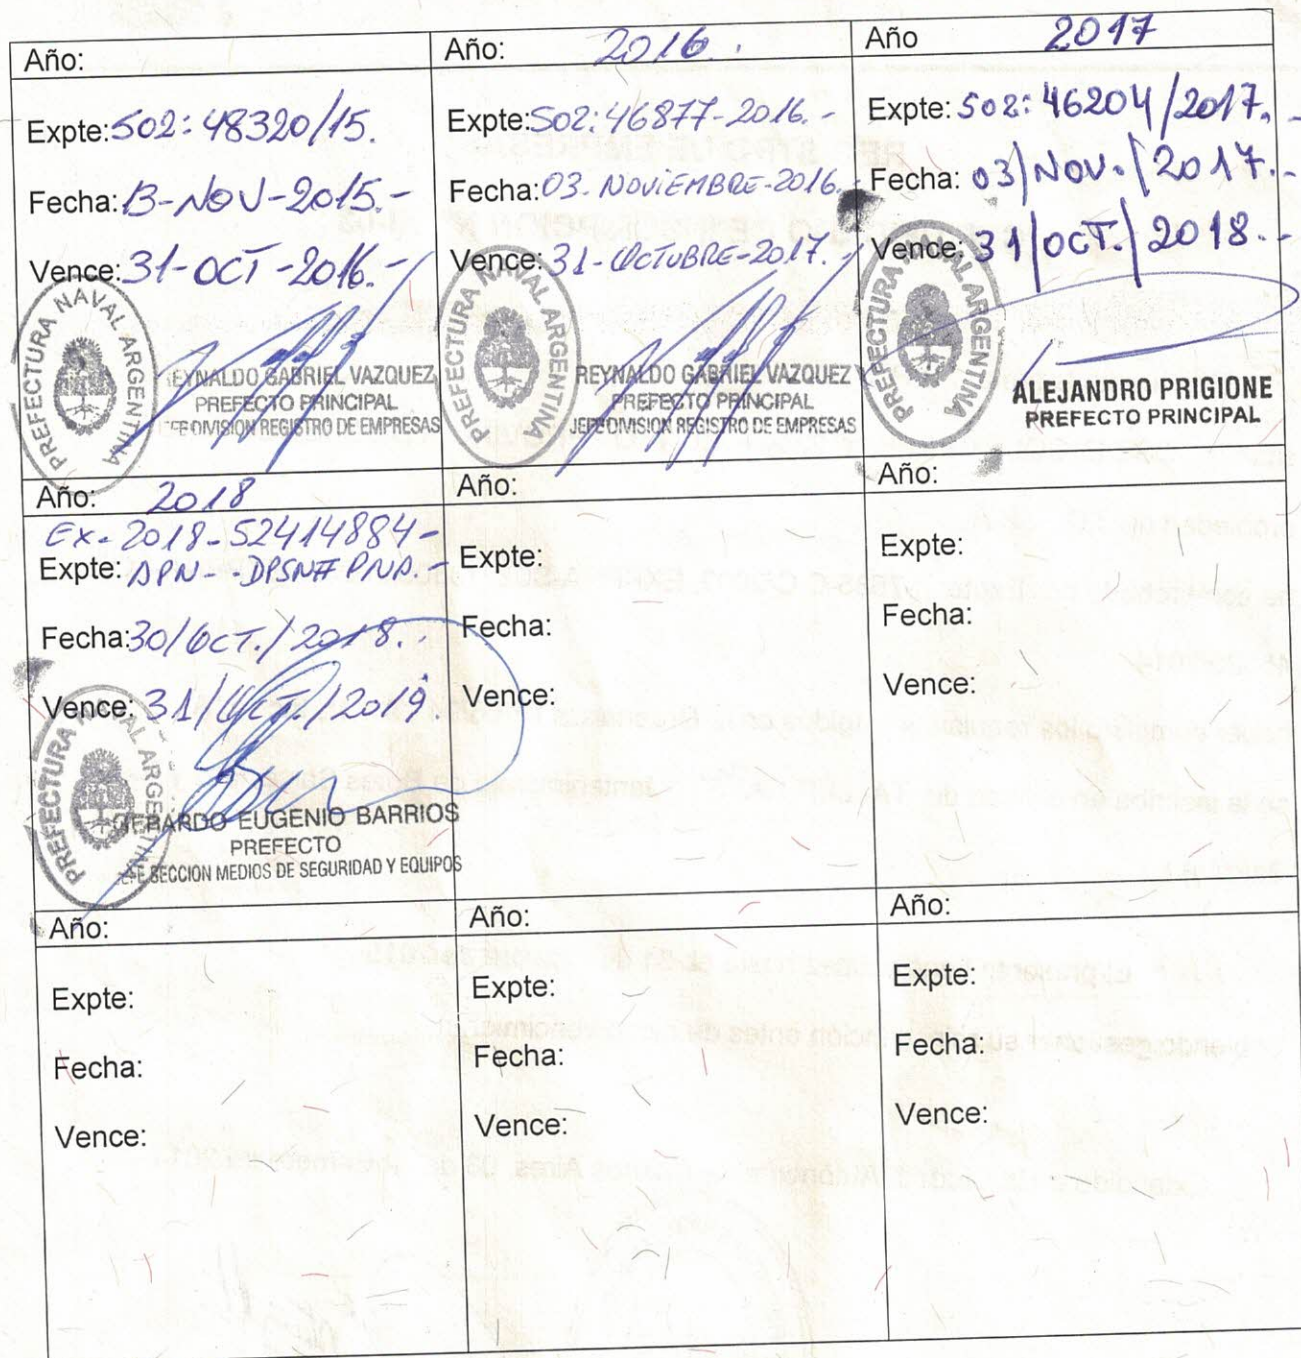 Año:
Expte: S02: 48320/15.
Fecha: 13-NOV-2015.-
Vence: 31-OCT-2016.-
PREFECTURA NAVAL ARGENTINA
REYNALDO GABRIEL VAZQUEZ
PREFECTO PRINCIPAL
JEFE DIVISION REGISTRO DE EMPRESAS
Año: 2016.
Expte: S02: 46877-2016.-
Fecha: 03-NOVIEMBRE-2016.-
Vence: 31-OCTUBRE-2017.-
PREFECTURA NAVAL ARGENTINA
REYNALDO GABRIEL VAZQUEZ
PREFECTO PRINCIPAL
JEFE DIVISION REGISTRO DE EMPRESAS
Año 2017
Expte: S02: 46204/2017.-
Fecha: 03/NOV./2017.-
Vence: 31/OCT./2018.-
PREFECTURA NAVAL ARGENTINA
ALEJANDRO PRIGIONE
PREFECTO PRINCIPAL
Año: 2018
EX-2018-52414884-
Expte: APN--DPSN#PNA.-
Fecha: 30/OCT./2018.-
Vence: 31/OCT./2019.
PREFECTURA NAVAL ARGENTINA
GERARDO EUGENIO BARRIOS
PREFECTO
JEFE SECCION MEDIOS DE SEGURIDAD Y EQUIPOS
Año:
Expte:
Fecha:
Vence:
Año:
Expte:
Fecha:
Vence:
Año:
Expte:
Fecha:
Vence:
Año:
Expte:
Fecha:
Vence:
Año:
Expte:
Fecha:
Vence: